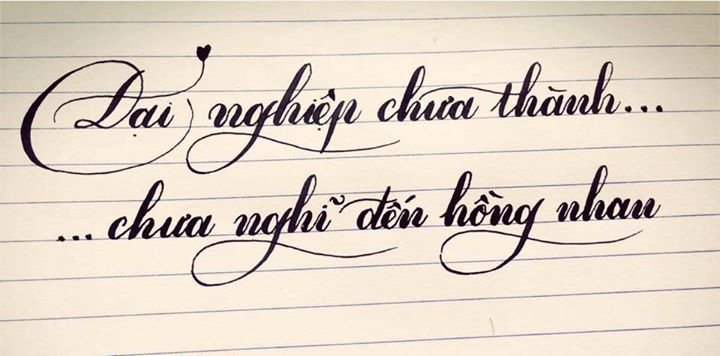 Đại nghiệp chưa thành...
...chưa nghĩ đến hồng nhan